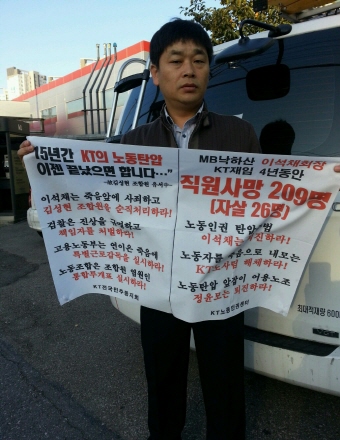 15년간 KT의 노동탄압
이젠 끝났으면 합니다..."
-故김성현 조합원 유서中-
이석채는 죽음앞에 사죄하고
김성현 조합원을 순직처리하라!
검찰은 진상을
책임자를 처벌하라!
고용노동부는 연이은 죽음에
특별근로감독을 실시하라!
노동조합은 조합원 염원인
통합투개표 실시하라!
KT전국민주동지회
MB낙하산 이석채회장
KT재임 4년동안
직원사망 209명
(자살 26명)
노동인권 탄압 범
이석채는 퇴진하라!
노동자를 죽음으로 내모는
KT노사팀 해체하라!
노동탄압 앞잡이 어용노조
정윤모는 퇴진하라!
KT노동인권센타
최대적재량 600